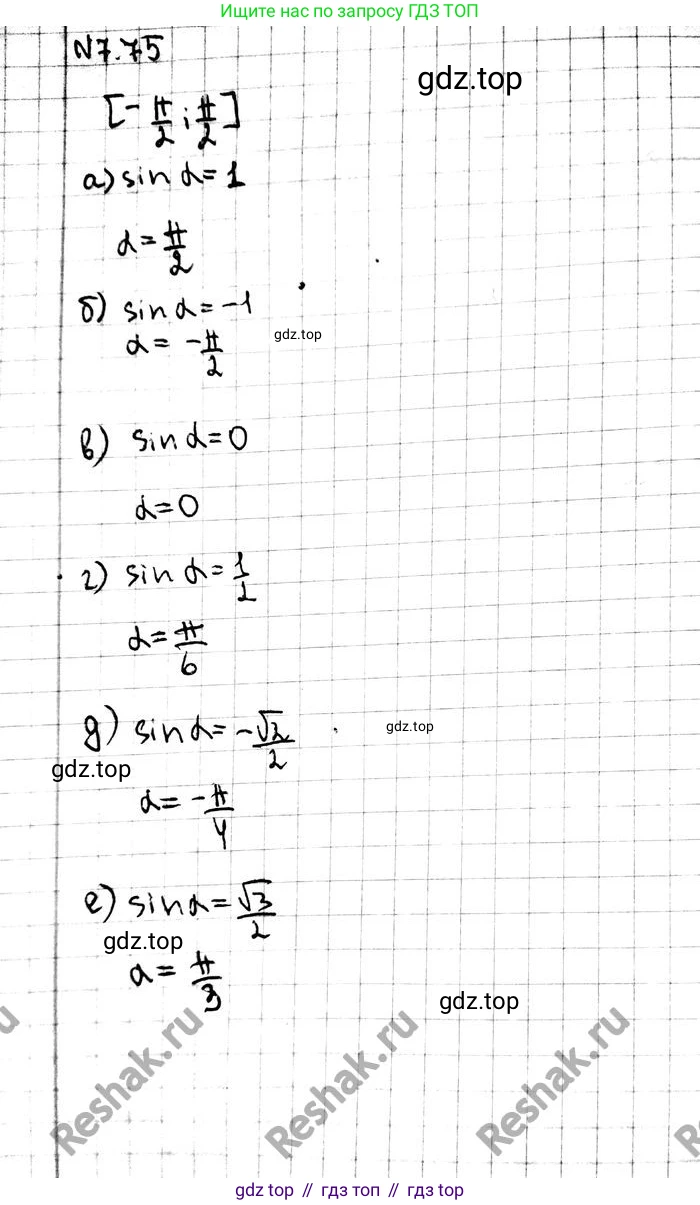 Ищите нас по запросу ГДЗ ТОП
N7.75
gdz.top
[-π/2; π/2]
а) sin α = 1
α = π/2
б) sin α = -1
gdz.top
α = -π/2
в) sin α = 0
α = 0
г) sin α = 1/2
α = π/6
д) sin α = -√2/2
gdz.top
gdz.top
α = -π/4
е) sin α = √3/2
gdz.top
α = π/3
gdz.top
Reshak.ru
Reshak.ru
Reshak.ru
gdz top // гдз топ // gdz top